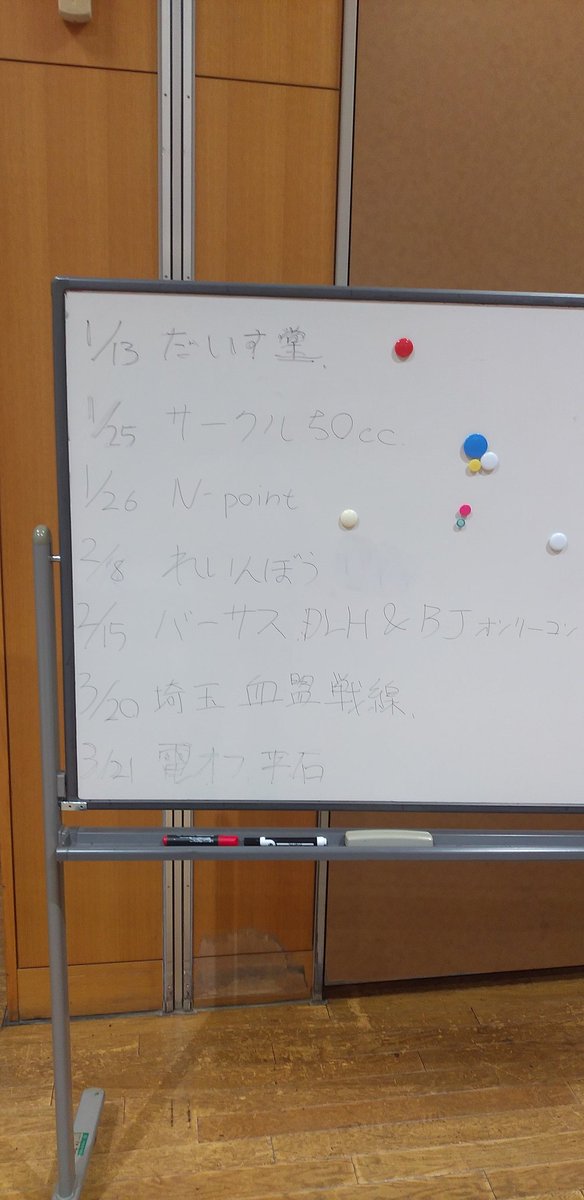 1/13 だいす堂.
1/25 サークル50cc.
1/26 N-point
2/8 れいんぼう
2/15 バーサス DLH & BJ オンリーコン
3/20 埼玉血盟戦線.
3/21 電オフ 平石